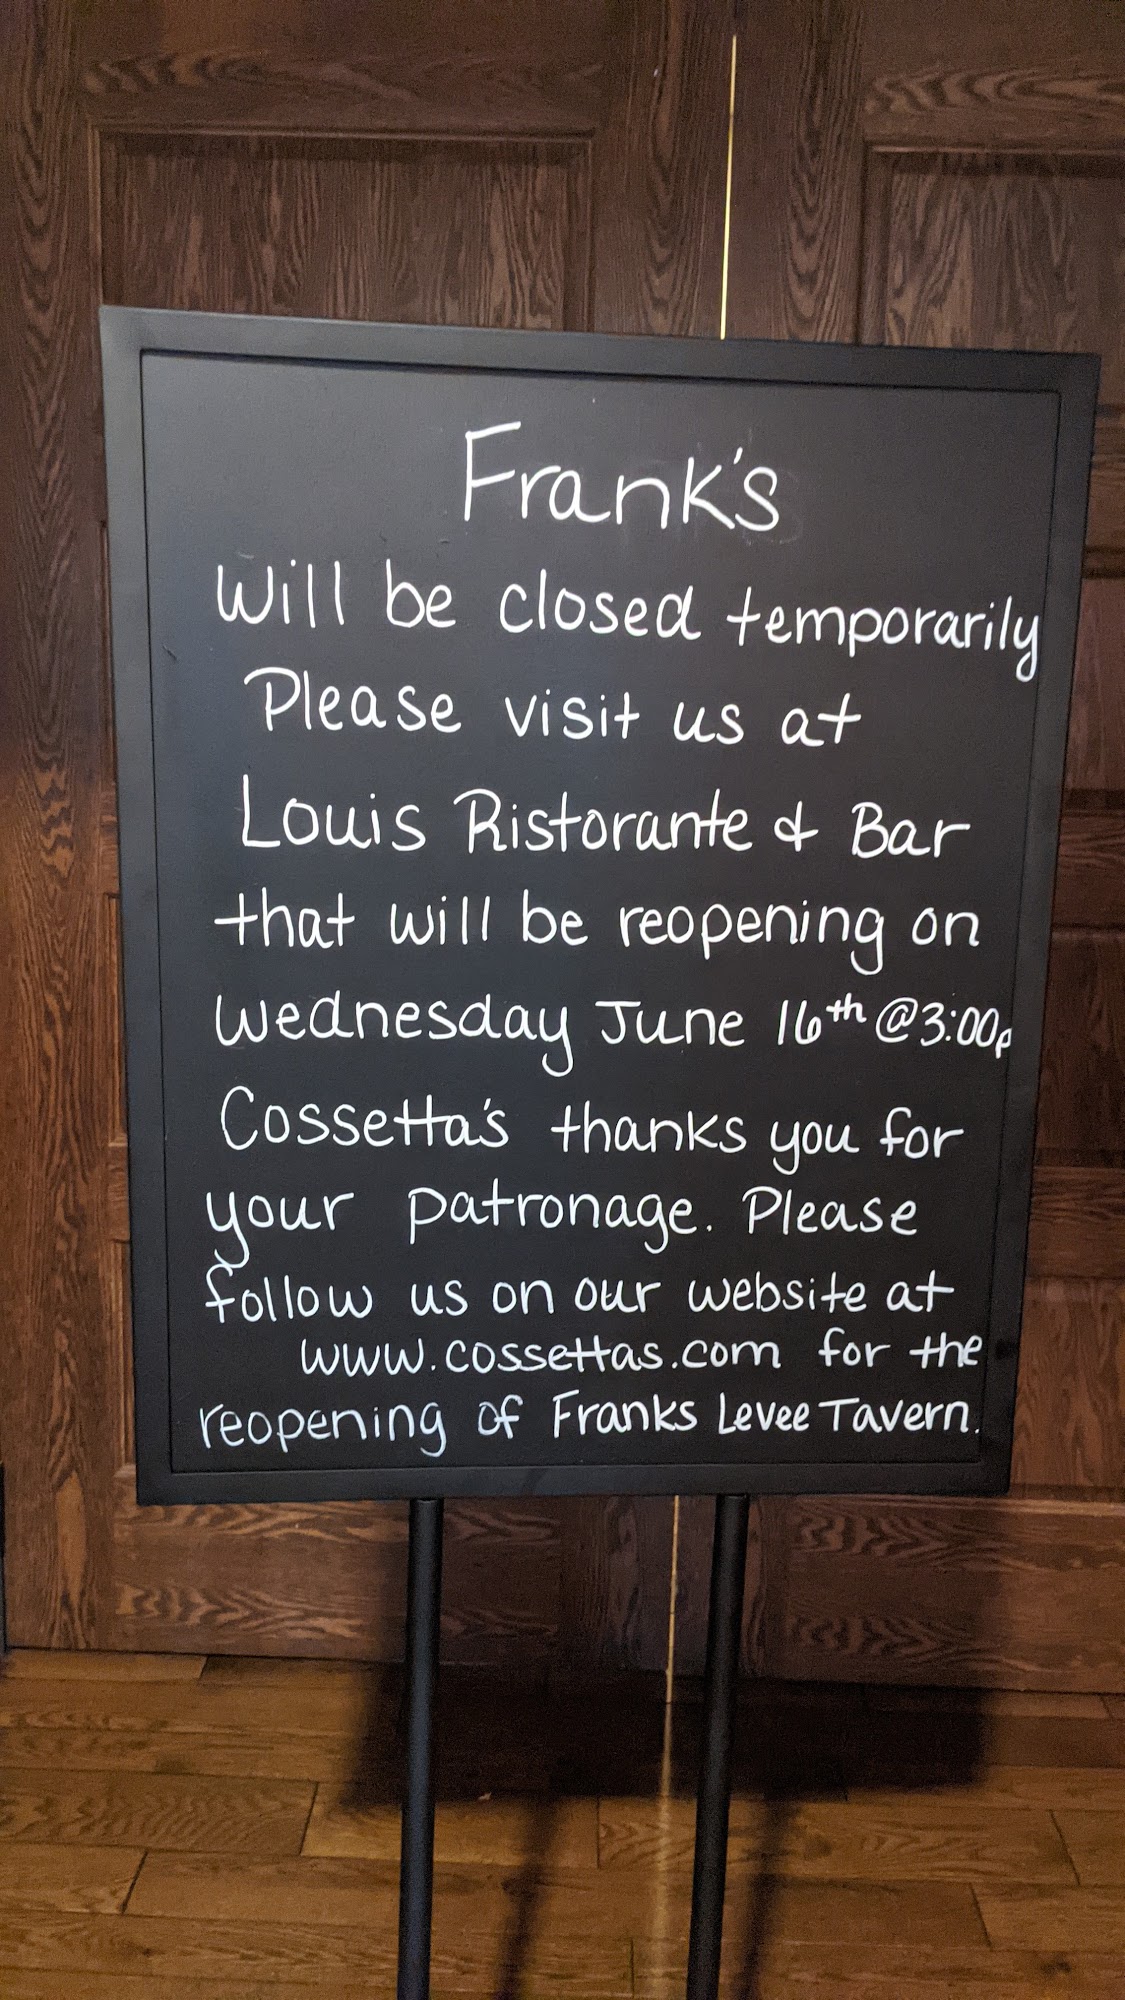 Frank's
Will be closed temporarily
Please visit us at
Louis Ristorante & Bar
that will be reopening on
Wednesday June 16th @3:00p
Cossetta's thanks you for
your patronage. Please
follow us on our website at
www.cossettas.com for the
reopening of Franks Levee Tavern.